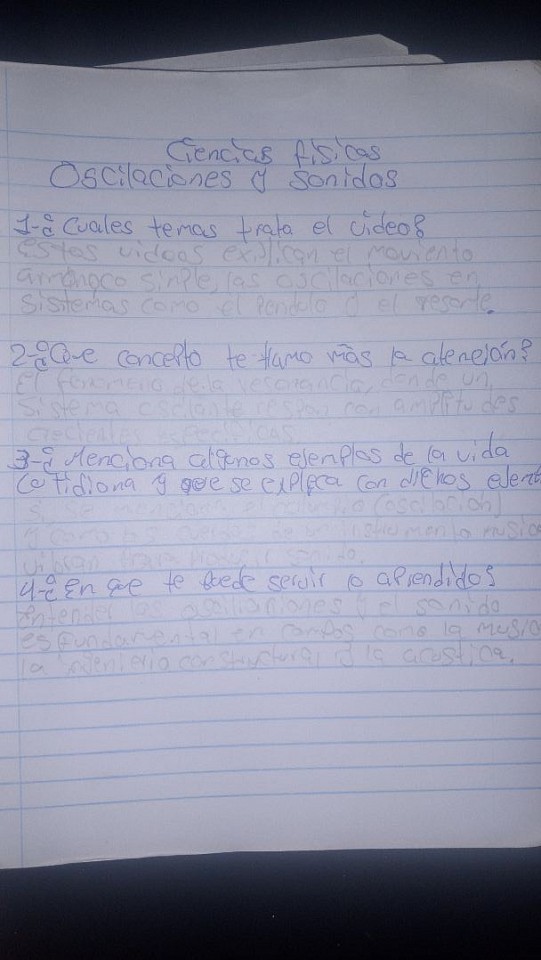 Ciencias físicas
Oscilaciones y sonidos
1-¿Cuales temas trata el video?
Estos videos explican el moviento
armónoco simple, las oscilaciones en
sistemas como el pendulo y el resorte.
2-¿Que concepto te llamo más la atención?
El fenomeno de la resonancia, donde un
sistema oscilante respon con amplitudes
crecientes
3-¿Menciona algunos ejemplos de la vida
Cotidiana y que se explica con dichos
Si, se menciona el (oscilación)
y como las cuerdas de un instrumento
vibran para producir sonido.
4-¿En que te puede servir lo aprendido?
Entender las oscilaciones y el sonido
es fundamental en campos como la
la y la acostica.